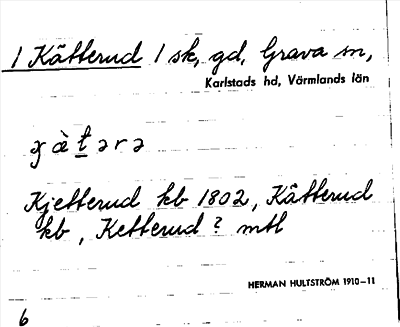 1 Kätterud 1 sk, gd, Grava sn,
Karlstads hd, Värmlands län
Kjetterud kb 1802, Kätterud
kb, Ketterud? mtl
HERMAN HULTSTRÖM 1910–11
6